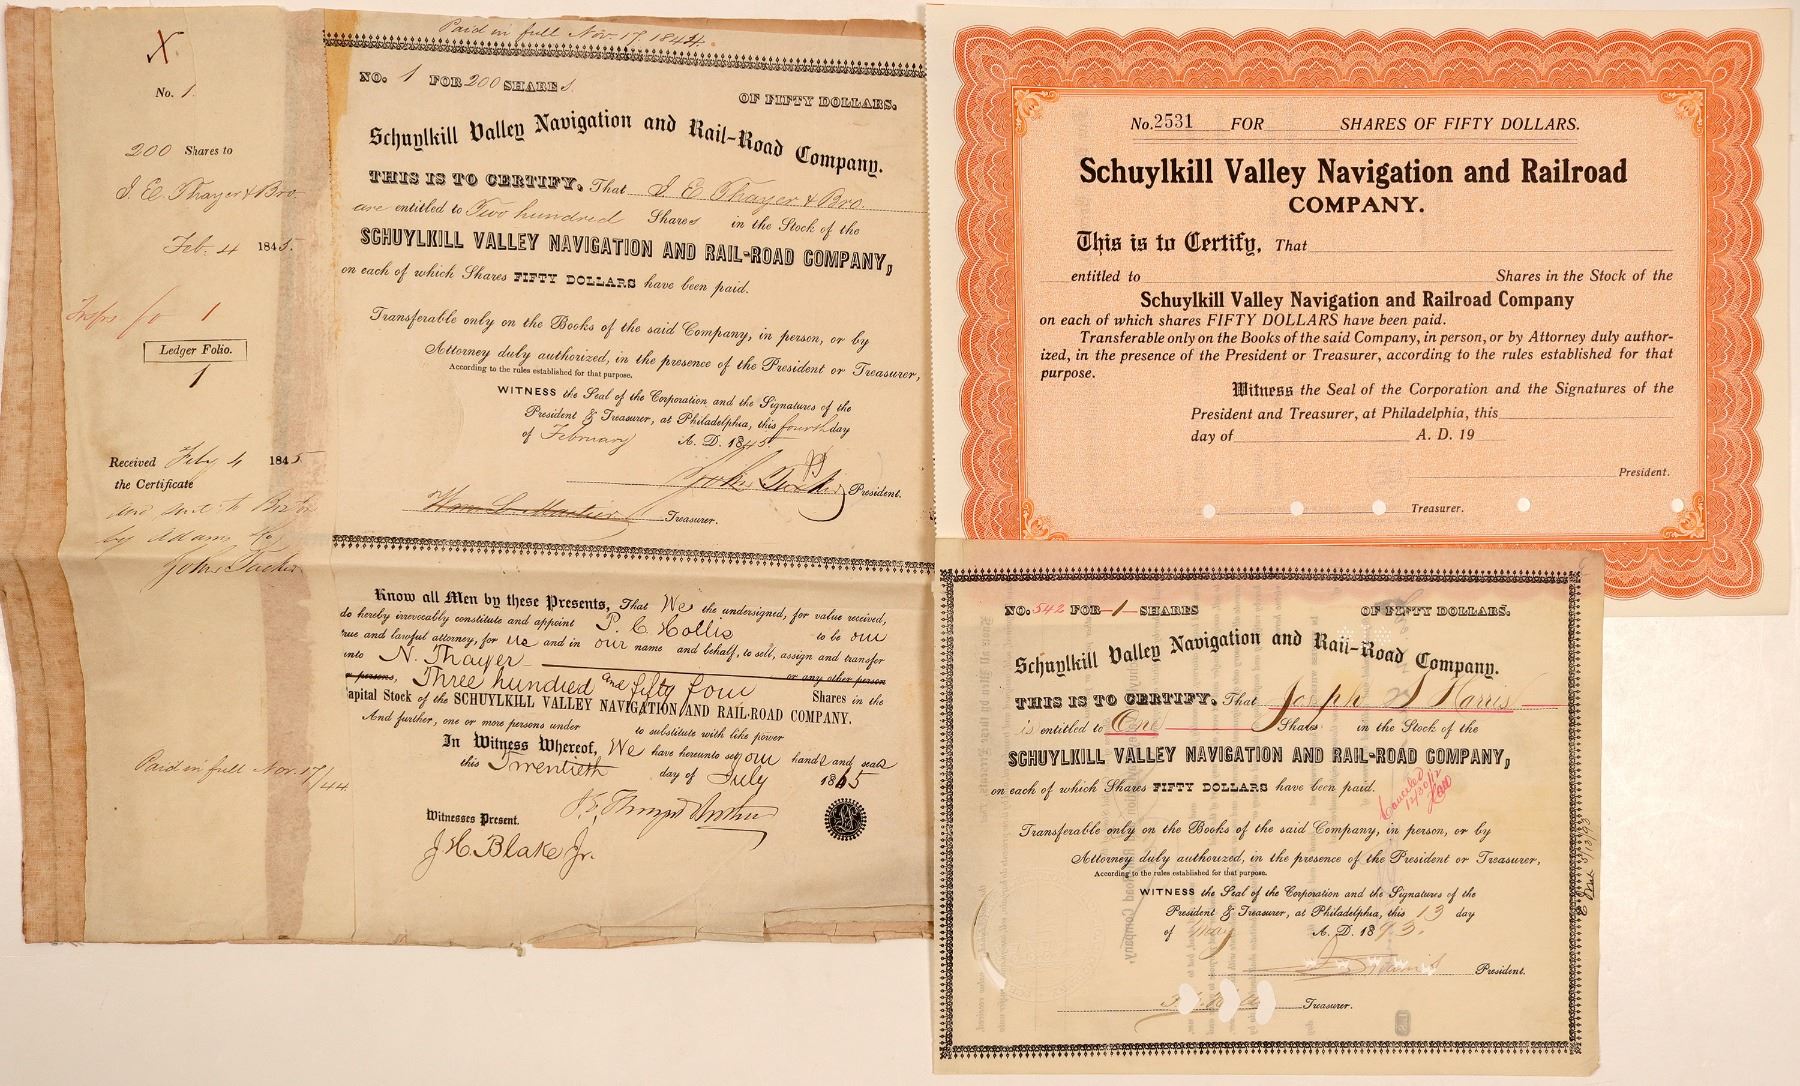 X
No. 1
200 Shares to
J. E. Thayer & Bro.
Feb. 4 1845
1
Ledger Folio.
1
Received Feby 4 1845
the Certificate
and sent to
by Adams
John Tucker
Paid in full Nov. 17/44
Paid in full Nov. 17, 1844.
NO. 1 FOR 200 SHARES
OF FIFTY DOLLARS.
Schuylkill Valley Navigation and Rail-Road Company.
THIS IS TO CERTIFY, That J. E. Thayer & Bro.
are entitled to Two hundred Shares in the Stock of the
SCHUYLKILL VALLEY NAVIGATION AND RAIL-ROAD COMPANY,
on each of which Shares FIFTY DOLLARS have been paid.
Transferable only on the Books of the said Company, in person, or by
Attorney duly authorized, in the presence of the President or Treasurer,
According to the rules established for that purpose.
WITNESS the Seal of the Corporation and the Signatures of the
President & Treasurer, at Philadelphia, this fourth day
of February A. D. 1845
John Tucker President.
Treasurer.
Know all Men by these Presents, That We the undersigned, for value received,
do hereby irrevocably constitute and appoint P. C. Hollis to be our
true and lawful attorney, for us and in our name and behalf, to sell, assign and transfer
unto N. Thayer or any other person
or persons, Three hundred and fifty four Shares in the
Capital Stock of the SCHUYLKILL VALLEY NAVIGATION AND RAIL-ROAD COMPANY.
And further, one or more persons under to substitute with like power
In Witness Whereof, We have hereunto set our hands and seals
this Twentieth day of July 1865
Witnesses Present.
J. H. Blake Jr.
No. 2531 FOR SHARES OF FIFTY DOLLARS.
Schuylkill Valley Navigation and Railroad
COMPANY.
This is to Certify, That
entitled to Shares in the Stock of the
Schuylkill Valley Navigation and Railroad Company
on each of which shares FIFTY DOLLARS have been paid.
Transferable only on the Books of the said Company, in person, or by Attorney duly author-
ized, in the presence of the President or Treasurer, according to the rules established for that
purpose.
Witness the Seal of the Corporation and the Signatures of the
President and Treasurer, at Philadelphia, this
day of A. D. 19
President.
Treasurer.
NO. 542 FOR 1 SHARES OF FIFTY DOLLARS.
Schuylkill Valley Navigation and Rail-Road Company.
THIS IS TO CERTIFY, That Joseph S Harris
is entitled to One Share in the Stock of the
SCHUYLKILL VALLEY NAVIGATION AND RAIL-ROAD COMPANY,
on each of which Shares FIFTY DOLLARS have been paid.
Cancelled
12/30/12
Transferable only on the Books of the said Company, in person, or by
Attorney duly authorized, in the presence of the President or Treasurer,
According to the rules established for that purpose.
WITNESS the Seal of the Corporation and the Signatures of the
President & Treasurer, at Philadelphia, this 13 day
of May A. D. 1893.
President.
Treasurer.